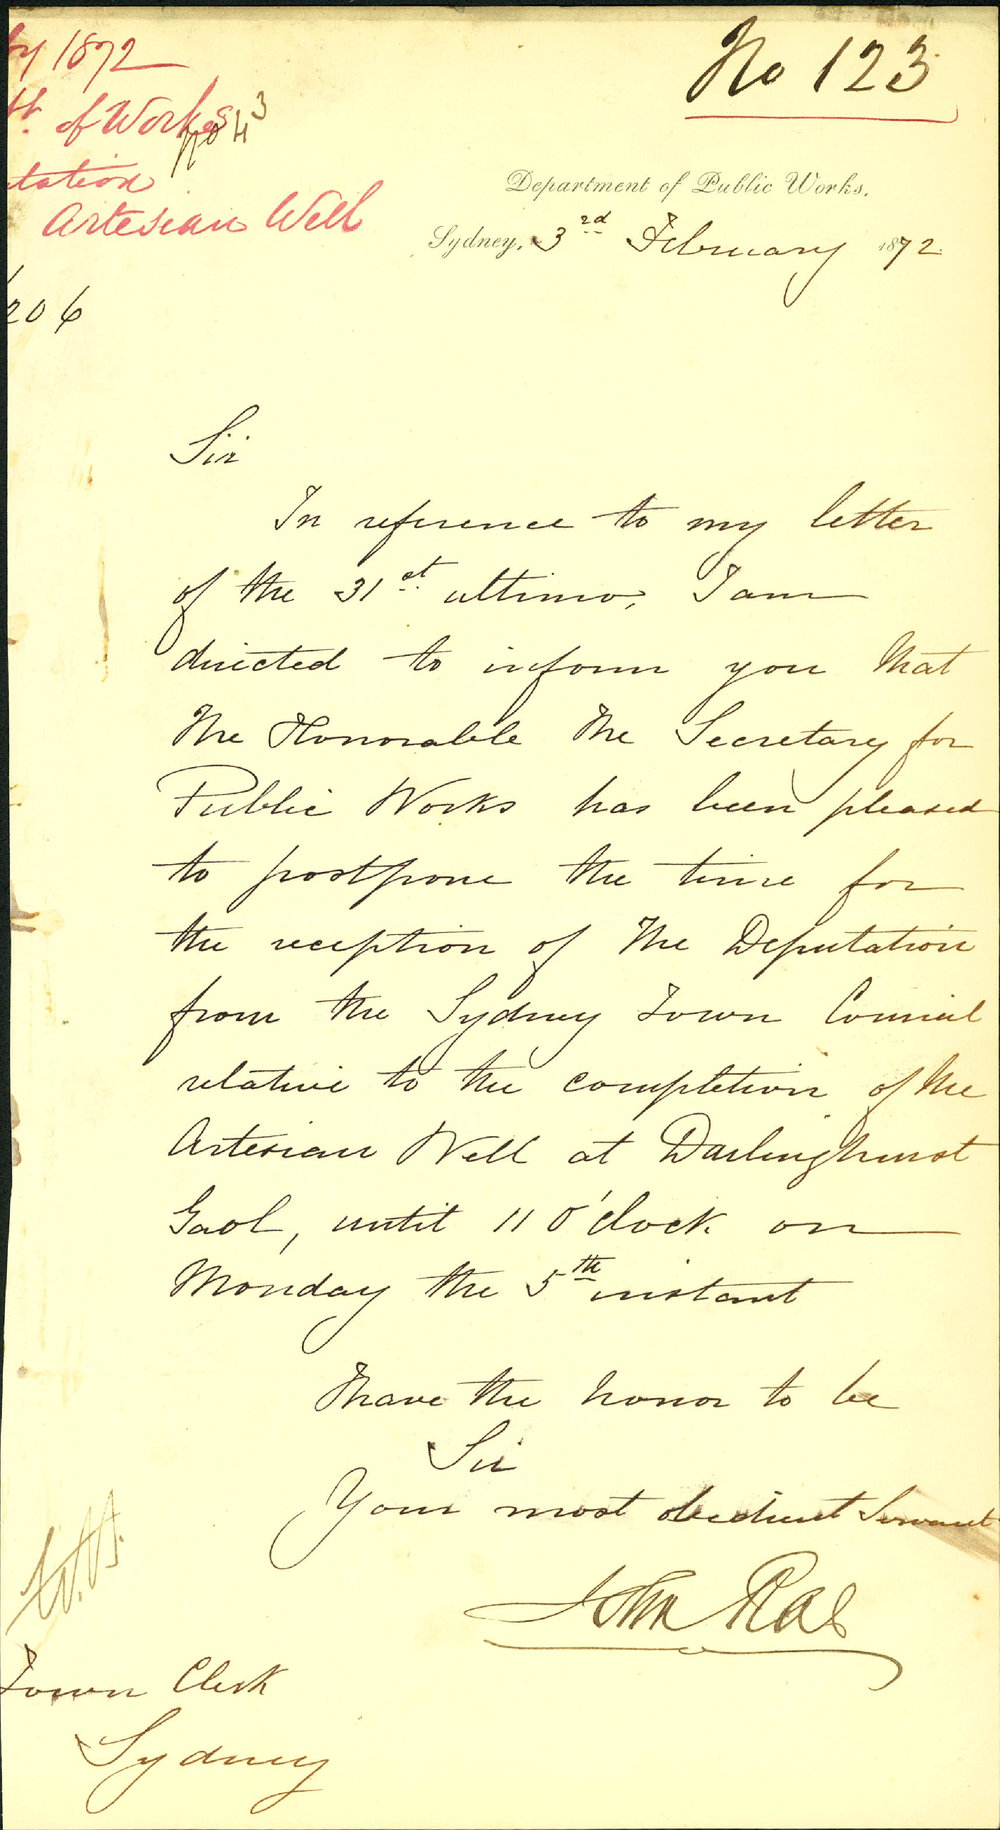 No 123
1872
of Works
No 43
tation
Artesian Well
206
Department of Public Works.
Sydney, 3rd February 1872
Sir
In reference to my letter
of the 31st ultimo, I am
directed to inform you that
the Honorable the Secretary for
Public Works has been pleased
to postpone the time for
the reception of the Deputation
from the Sydney Town Council
relative to the completion of the
Artesian Well at Darlinghurst
Gaol, until 11 O'clock on
Monday the 5th instant
I have the honor to be
Sir
Your most obedient Servant
John Rae
Town Clerk
Sydney